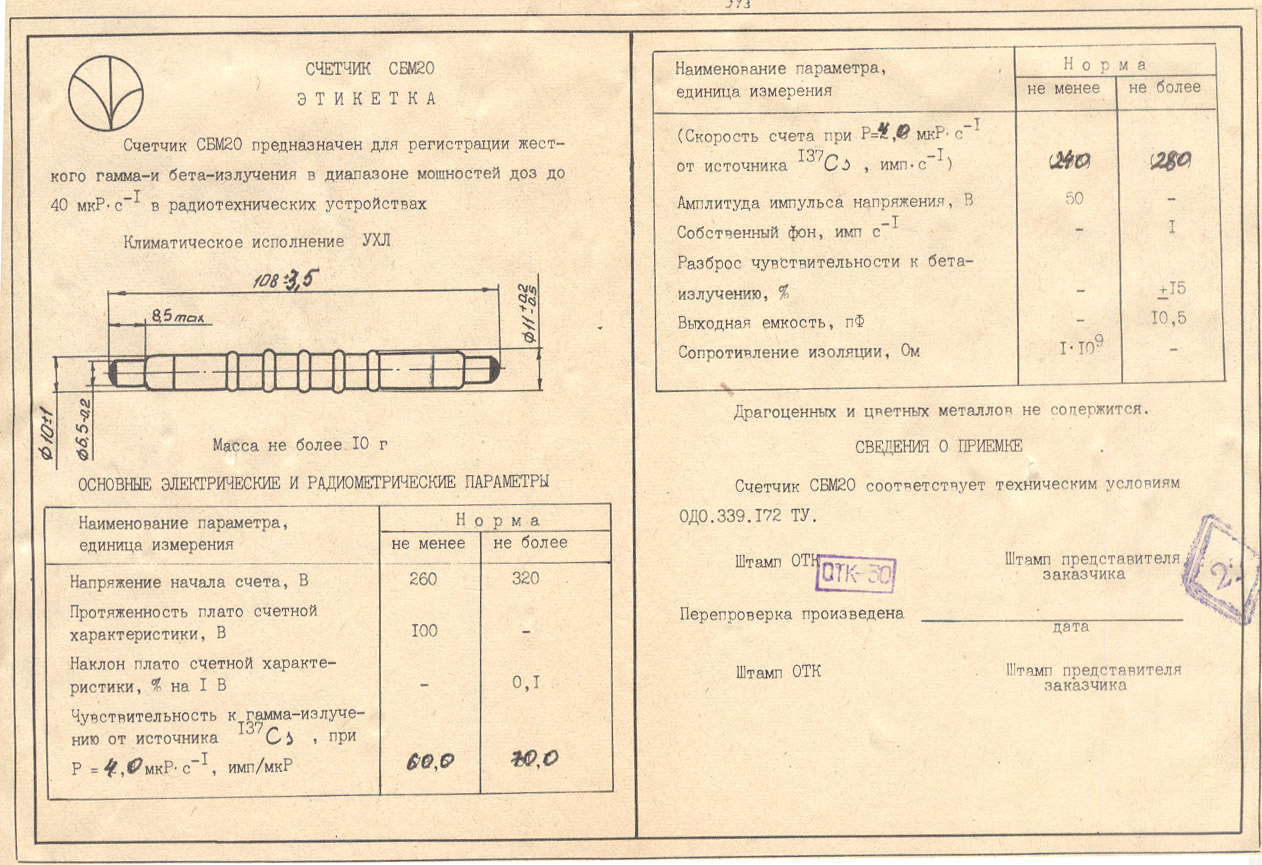 СЧЕТЧИК СБМ20
ЭТИКЕТКА
Счетчик СБМ20 предназначен для регистрации жест-
кого гамма-и бета-излучения в диапазоне мощностей доз до
40 мкР·с⁻I в радиотехнических устройствах
Климатическое исполнение УХЛ
108±3,5
8,5max
ϕ11+0,2-0,5
ϕ10±1
ϕ6,5-0,2
Масса не более I0 г
ОСНОВНЫЕ ЭЛЕКТРИЧЕСКИЕ И РАДИОМЕТРИЧЕСКИЕ ПАРАМЕТРЫ
Наименование параметра, Норма
единица измерения не менее не более
Напряжение начала счета, В 260 320
Протяженность плато счетной
характеристики, В I00 –
Наклон плато счетной характе-
ристики, % на I В – 0,I
Чувствительность к гамма-излуче-
нию от источника I37Cs , при
Р = 4,0 мкР·с⁻I, имп/мкР 60,0 70,0
Наименование параметра, Норма
единица измерения не менее не более
(Скорость счета при Р=4,0 мкР·с⁻I
от источника I37Cs , имп·с⁻I) (240) (280)
Амплитуда импульса напряжения, В 50 –
Собственный фон, имп с⁻I – I
Разброс чувствительности к бета-
излучению, % – ±I5
Выходная емкость, пФ – I0,5
Сопротивление изоляции, Ом I·I0⁹ –
Драгоценных и цветных металлов не содержится.
СВЕДЕНИЯ О ПРИЕМКЕ
Счетчик СБМ20 соответствует техническим условиям
ОДО.339.I72 ТУ.
Штамп ОТК ОТК-30 Штамп представителя
заказчика
Перепроверка произведена
дата
Штамп ОТК Штамп представителя
заказчика